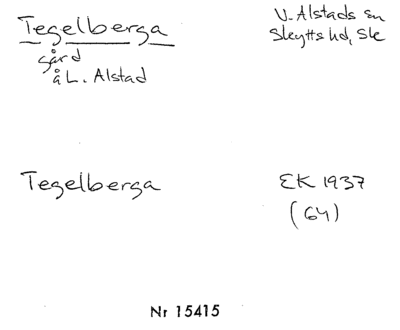 Tegelberga
V. Alstads sn
Skytts hd, Sk
gård
å L. Alstad
Tegelberga
EK 1937
(64)
Nr 15415